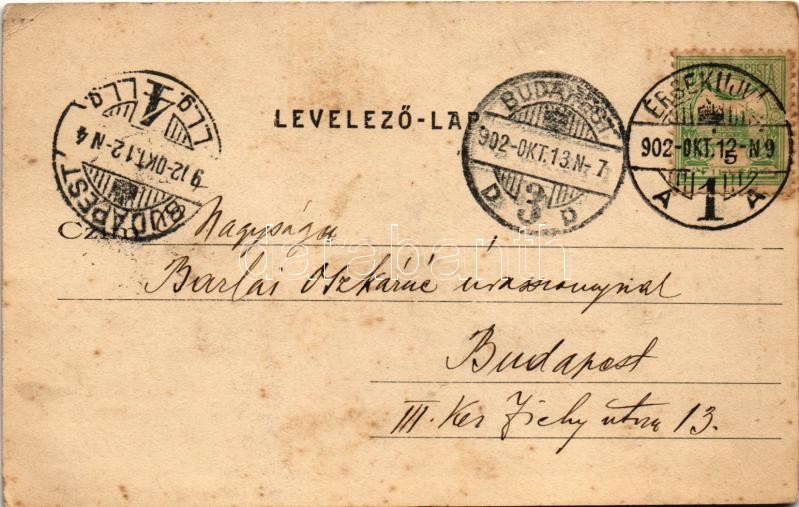 POSTA
LEVELEZŐ-LAP
BUDAPEST
912-OKT.12-N4
4
BUDAPEST
902-OKT.13.N-7
D 3 D
ÉRSEKUJV
902-OKT.12-N9
A 1 A
Czim Nagysága
Barlai Oszkárné úrasszonynak
Budapest
III. Ker Zichy utca 13.
darabanth